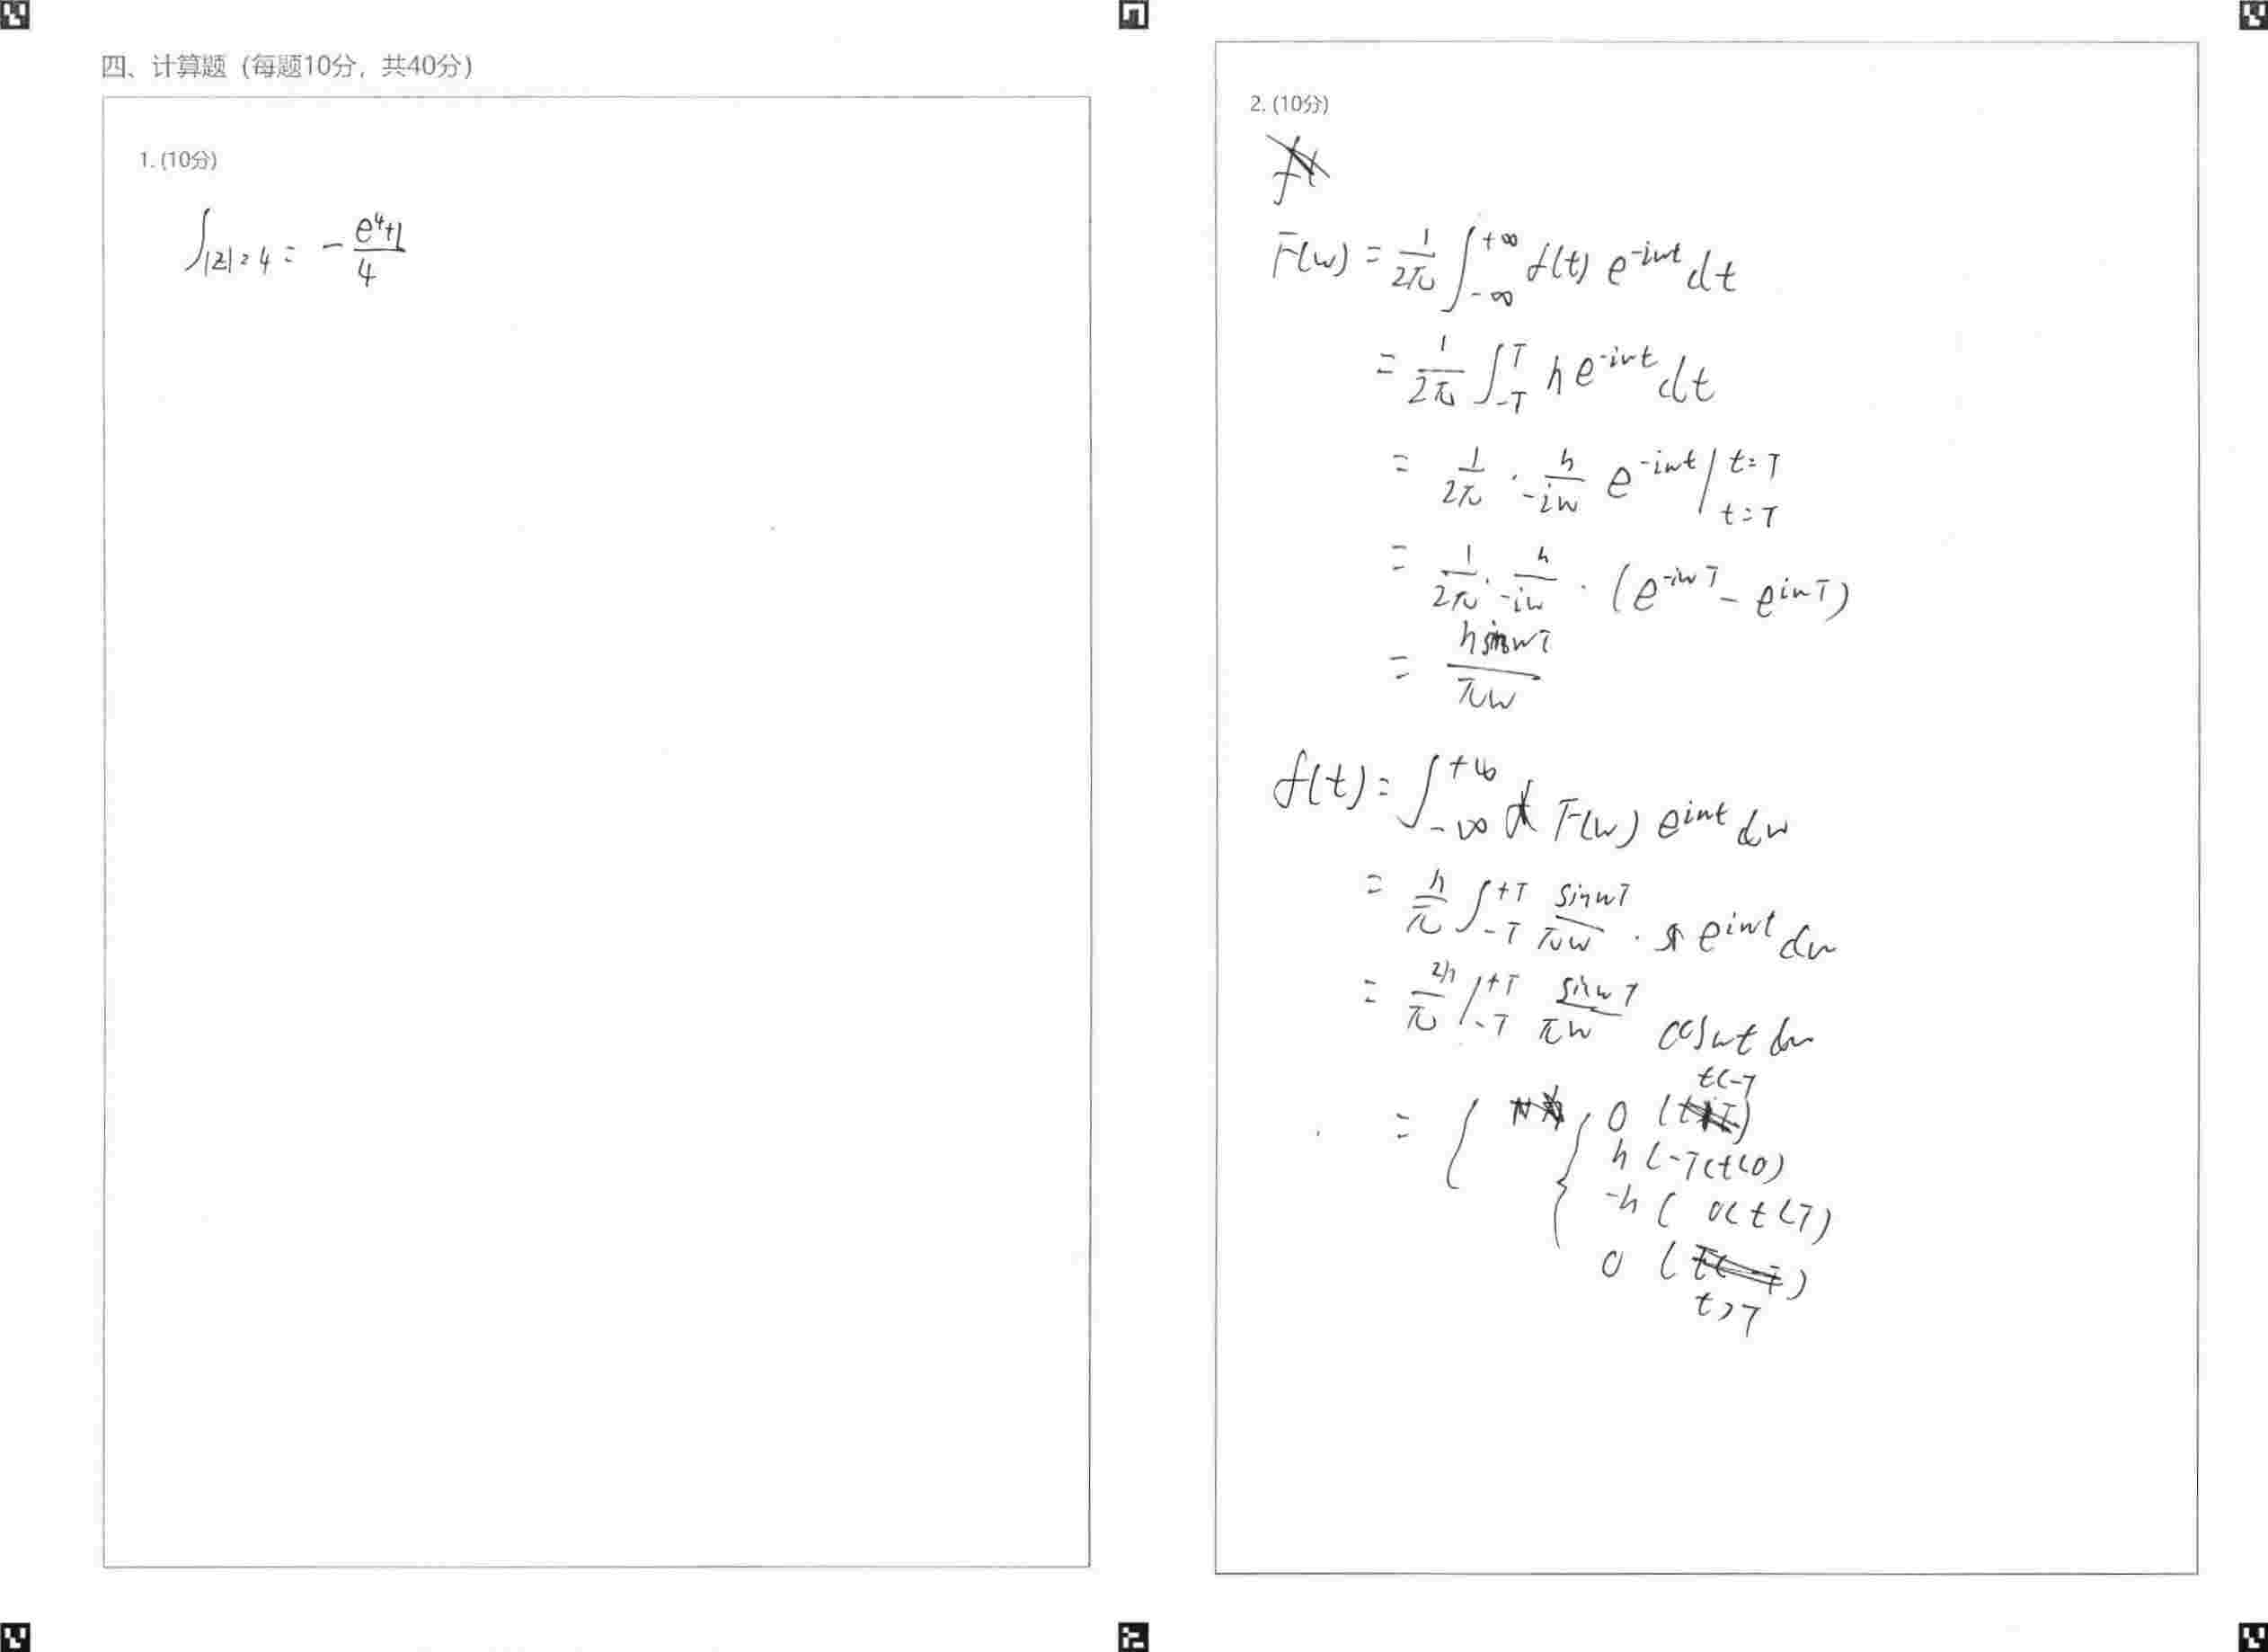 四、计算题 (每题10分, 共40分)
1. (10分)
∫|z|=4 = - (e^4+1)/4
2. (10分)
F(w) = 1/2π ∫_{-∞}^{+∞} f(t) e^{-iwt} dt
= 1/2π ∫_{-T}^{T} h e^{-iwt} dt
= 1/2π · h/-iw e^{-iwt} | t=T t=T
= 1/2π · h/-iw · (e^{-iwT} - e^{iwT})
= h sinwT / πw
f(t) = ∫_{-∞}^{+∞} F(w) e^{iwt} dw
= h/π ∫_{-T}^{+T} sinwT/πw · e^{iwt} dw
= 2h/π ∫_{-T}^{+T} sinwT/πw coswt dw
= { { 0 (t<-T)
h (-T<t<0)
-h ( 0<t<T)
0 (t>T)